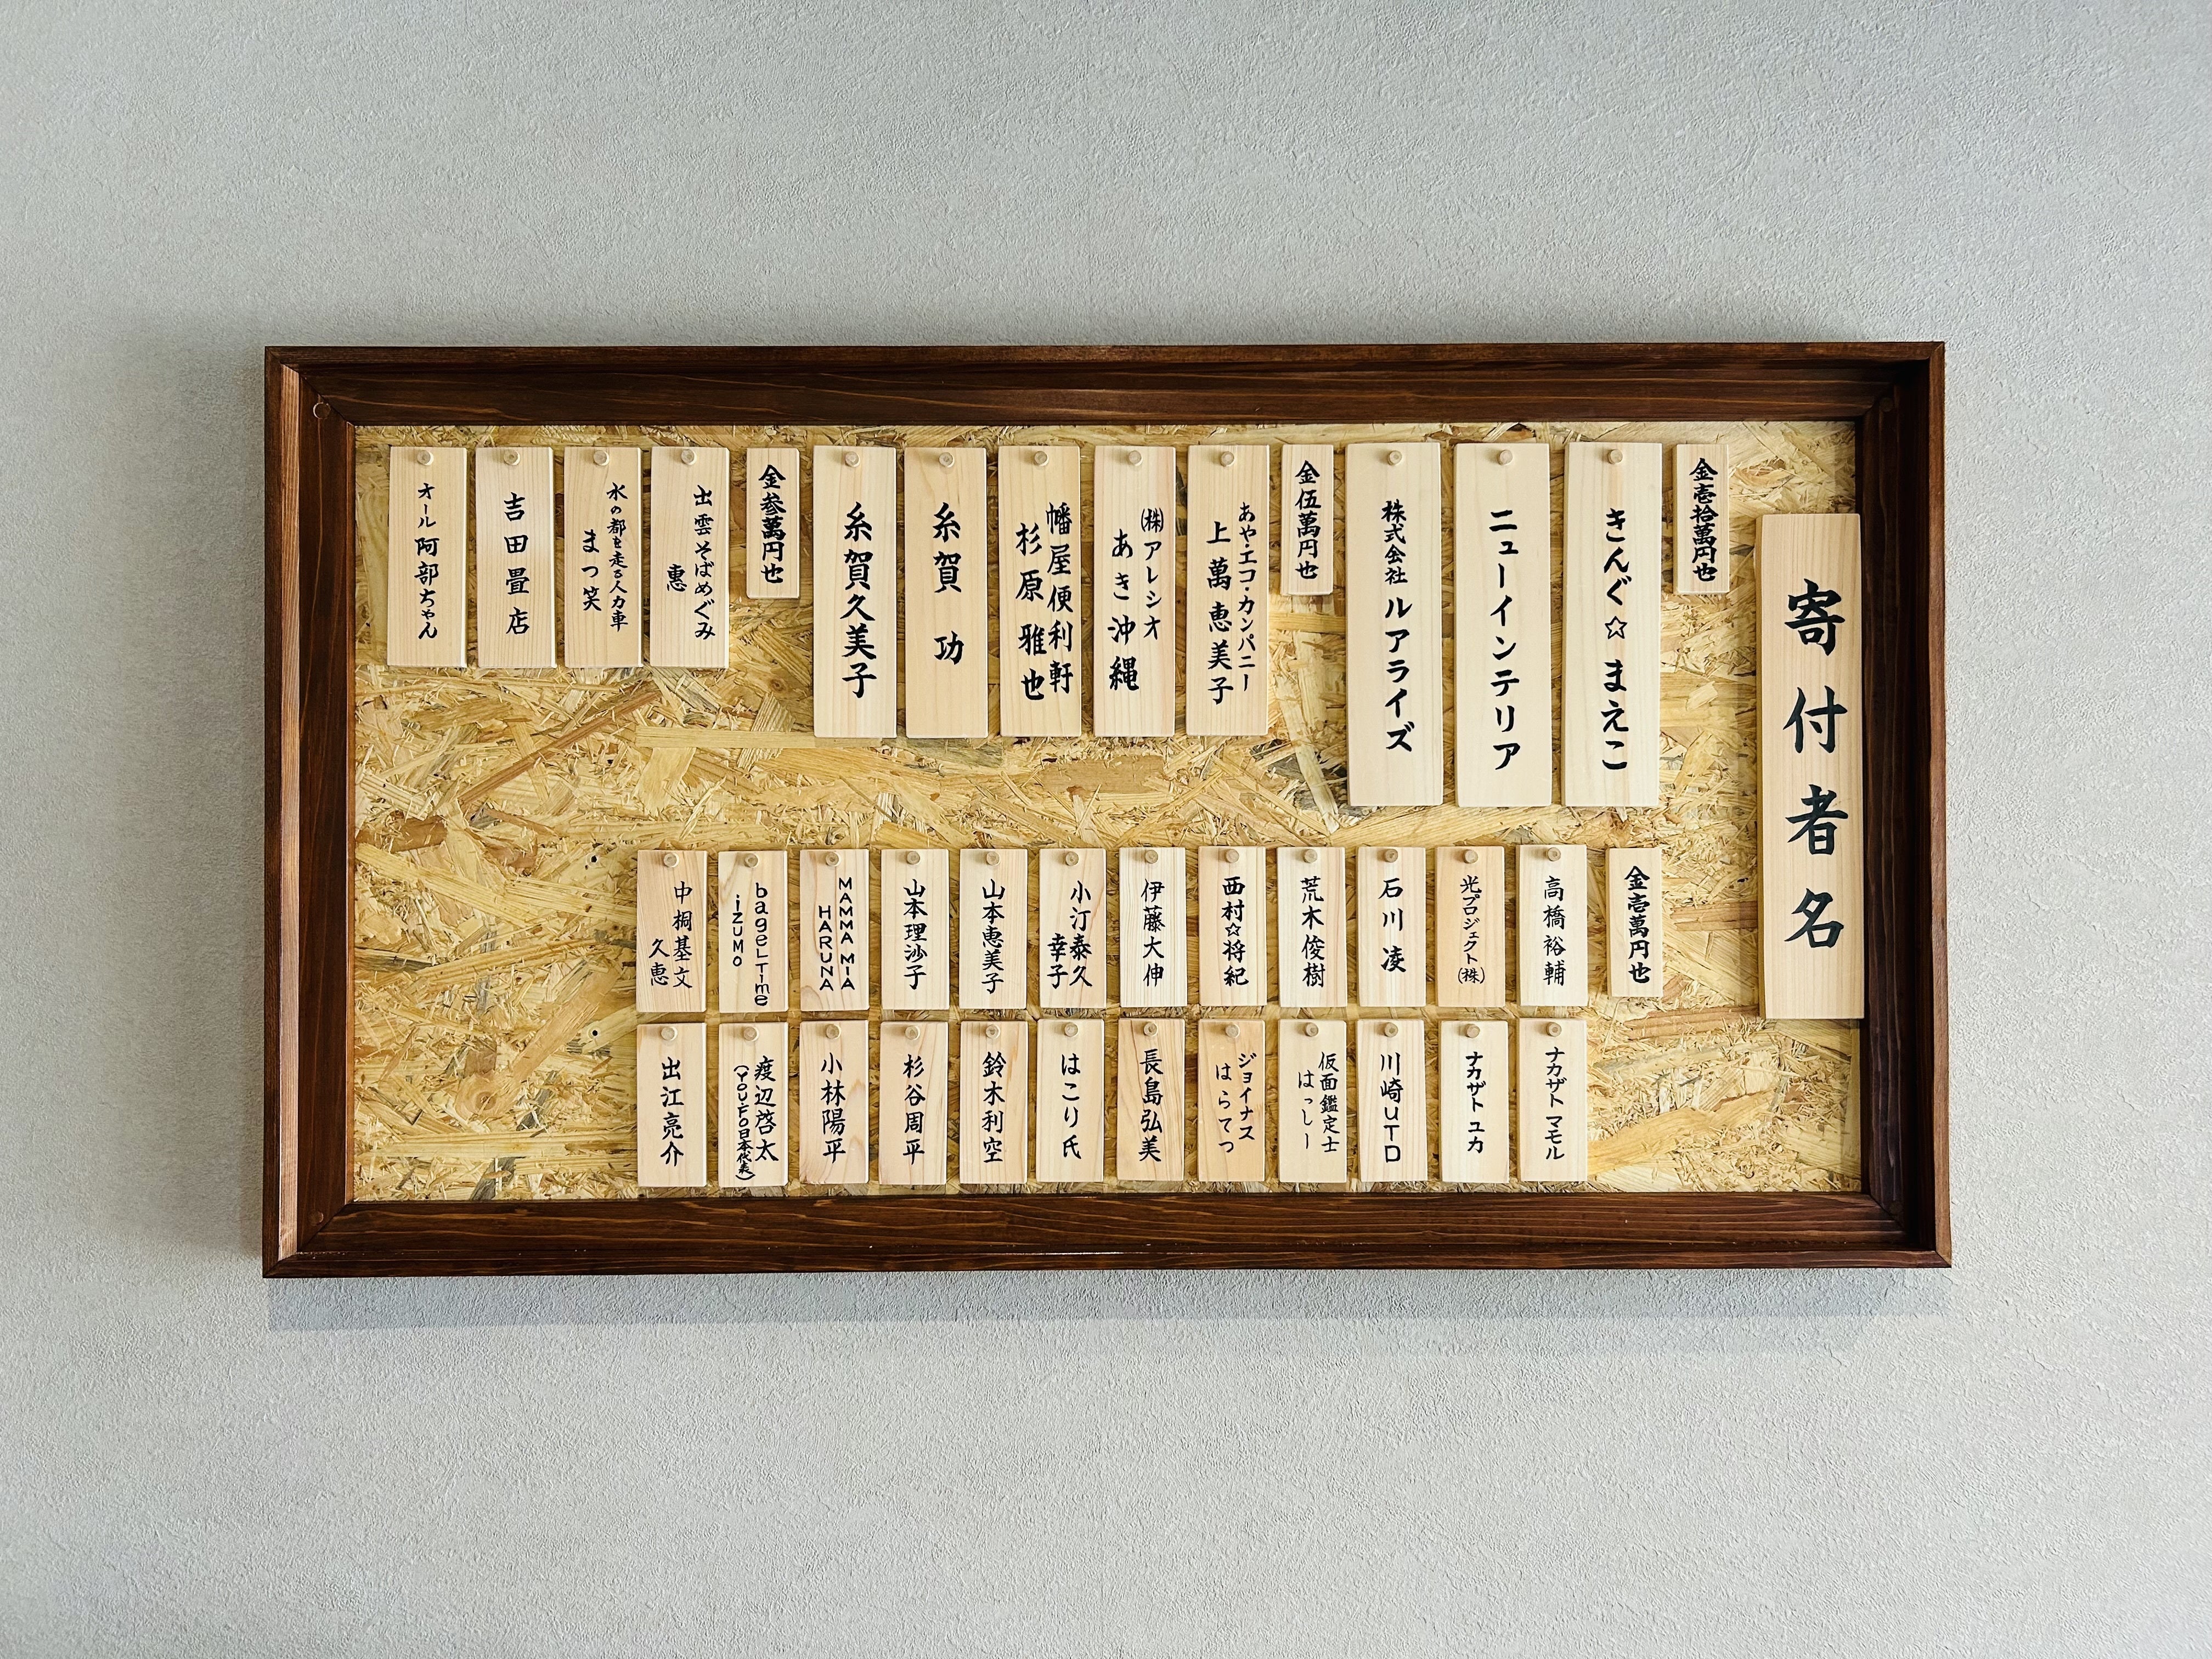 寄付者名
金壱拾萬円也
きんぐ☆まえこ
ニューインテリア
株式会社ルアライズ
金伍萬円也
あや・エコ・カンパニー
上萬恵美子
(株)アレシオ
あき沖縄
幡屋便利軒
杉原雅也
糸賀功
糸賀久美子
金参萬円也
出雲そばめぐみ
惠
水の都を走る人力車
まつ笑
吉田畳店
オール阿部ちゃん
金壱萬円也
高橋裕輔
光プロジェクト(株)
石川凌
荒木俊樹
西村☆将紀
伊藤大伸
小汀泰久
幸子
山本恵美子
山本理沙子
MAMMA MIA
HARUNA
bageLTime
iZUMO
中桐基文
久恵
ナカザト マモル
ナカザト ユカ
川崎UTD
仮面鑑定士
はっしー
ジョイナス
はらてつ
長島弘美
はこり氏
鈴木利空
杉谷周平
小林陽平
渡辺啓太
(YOU.FO日本代表)
出江亮介